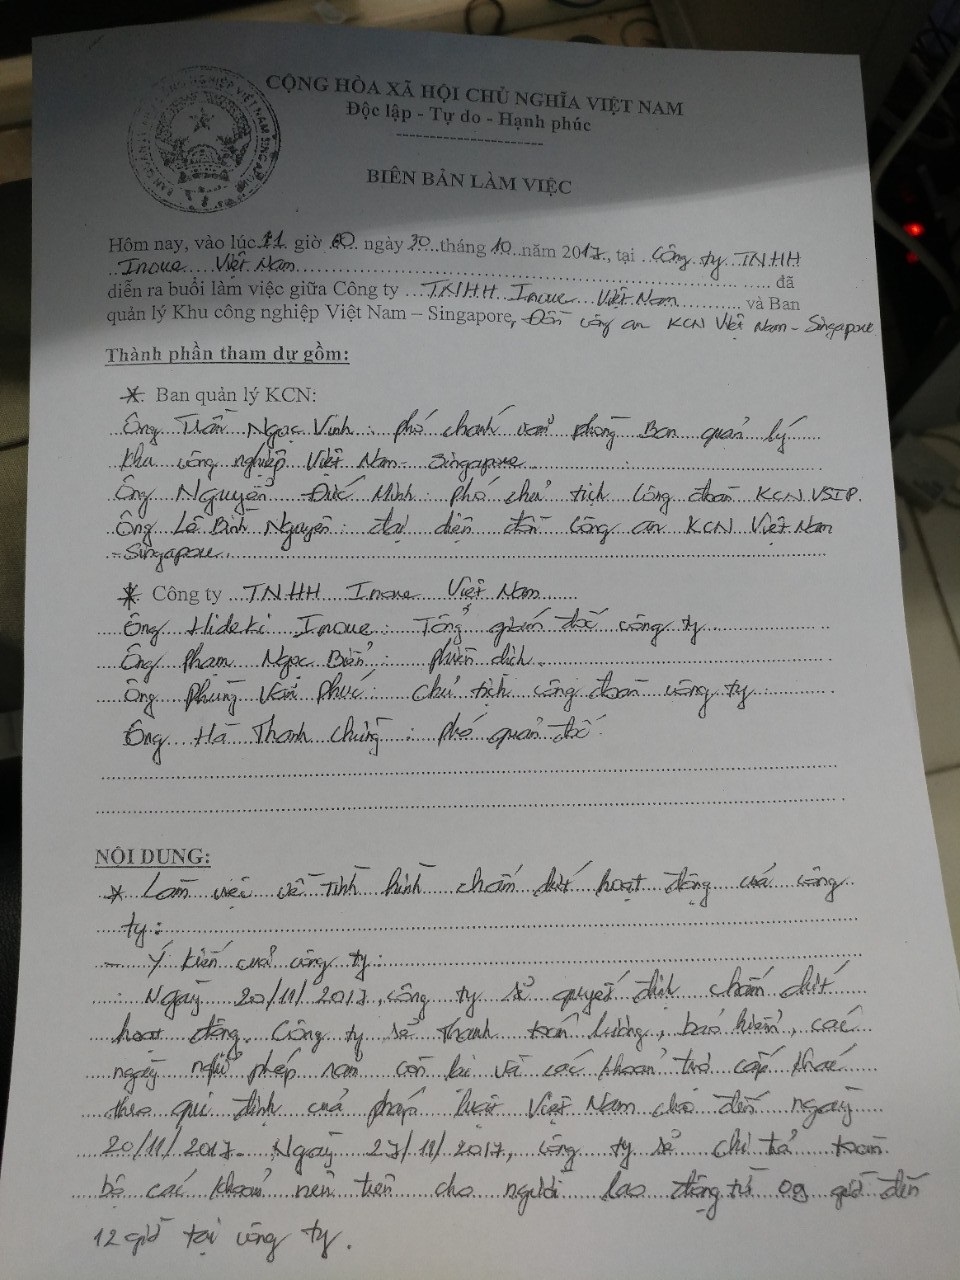 CỘNG HÒA XÃ HỘI CHỦ NGHĨA VIỆT NAM
Độc lập - Tự do - Hạnh phúc
BIÊN BẢN LÀM VIỆC
Hôm nay, vào lúc 11 giờ 00 ngày 30 tháng 10 năm 2017, tại Công ty TNHH
Inoue Việt Nam đã
diễn ra buổi làm việc giữa Công ty TNHH Inoue Việt Nam và Ban
quản lý Khu công nghiệp Việt Nam – Singapore, Đồn công an KCN Việt Nam - Singapore
Thành phần tham dự gồm:
* Ban quản lý KCN:
Ông Trần Ngọc Vinh: phó chánh văn phòng Ban quản lý
khu công nghiệp Việt Nam - Singapore
Ông Nguyễn Đức Minh: phó chủ tịch Công đoàn KCN VSIP.
Ông Lê Bình Nguyên: đại diện đồn Công an KCN Việt Nam
- Singapore.
* Công ty TNHH Inoue Việt Nam
Ông Hideki Inoue: Tổng giám đốc công ty
Ông Phạm Ngọc Biển: phiên dịch
Ông Phùng Văn Phúc: chủ tịch công đoàn công ty
Ông Hà Thanh Chung: phó quản đốc
NỘI DUNG:
* Làm việc về tình hình chấm dứt hoạt động của công
ty:
- Ý kiến của công ty:
Ngày 20/11/2017, công ty sẽ quyết định chấm dứt
hoạt động. Công ty sẽ thanh toán lương, bảo hiểm, các
ngày nghỉ phép năm còn lại và các khoản trợ cấp khác
theo qui định của pháp luật Việt Nam cho đến ngày
20/11/2017. Ngày 27/11/2017, công ty sẽ chi trả toàn
bộ các khoản nên tiền cho người lao động từ 09 giờ đến
12 giờ tại công ty.